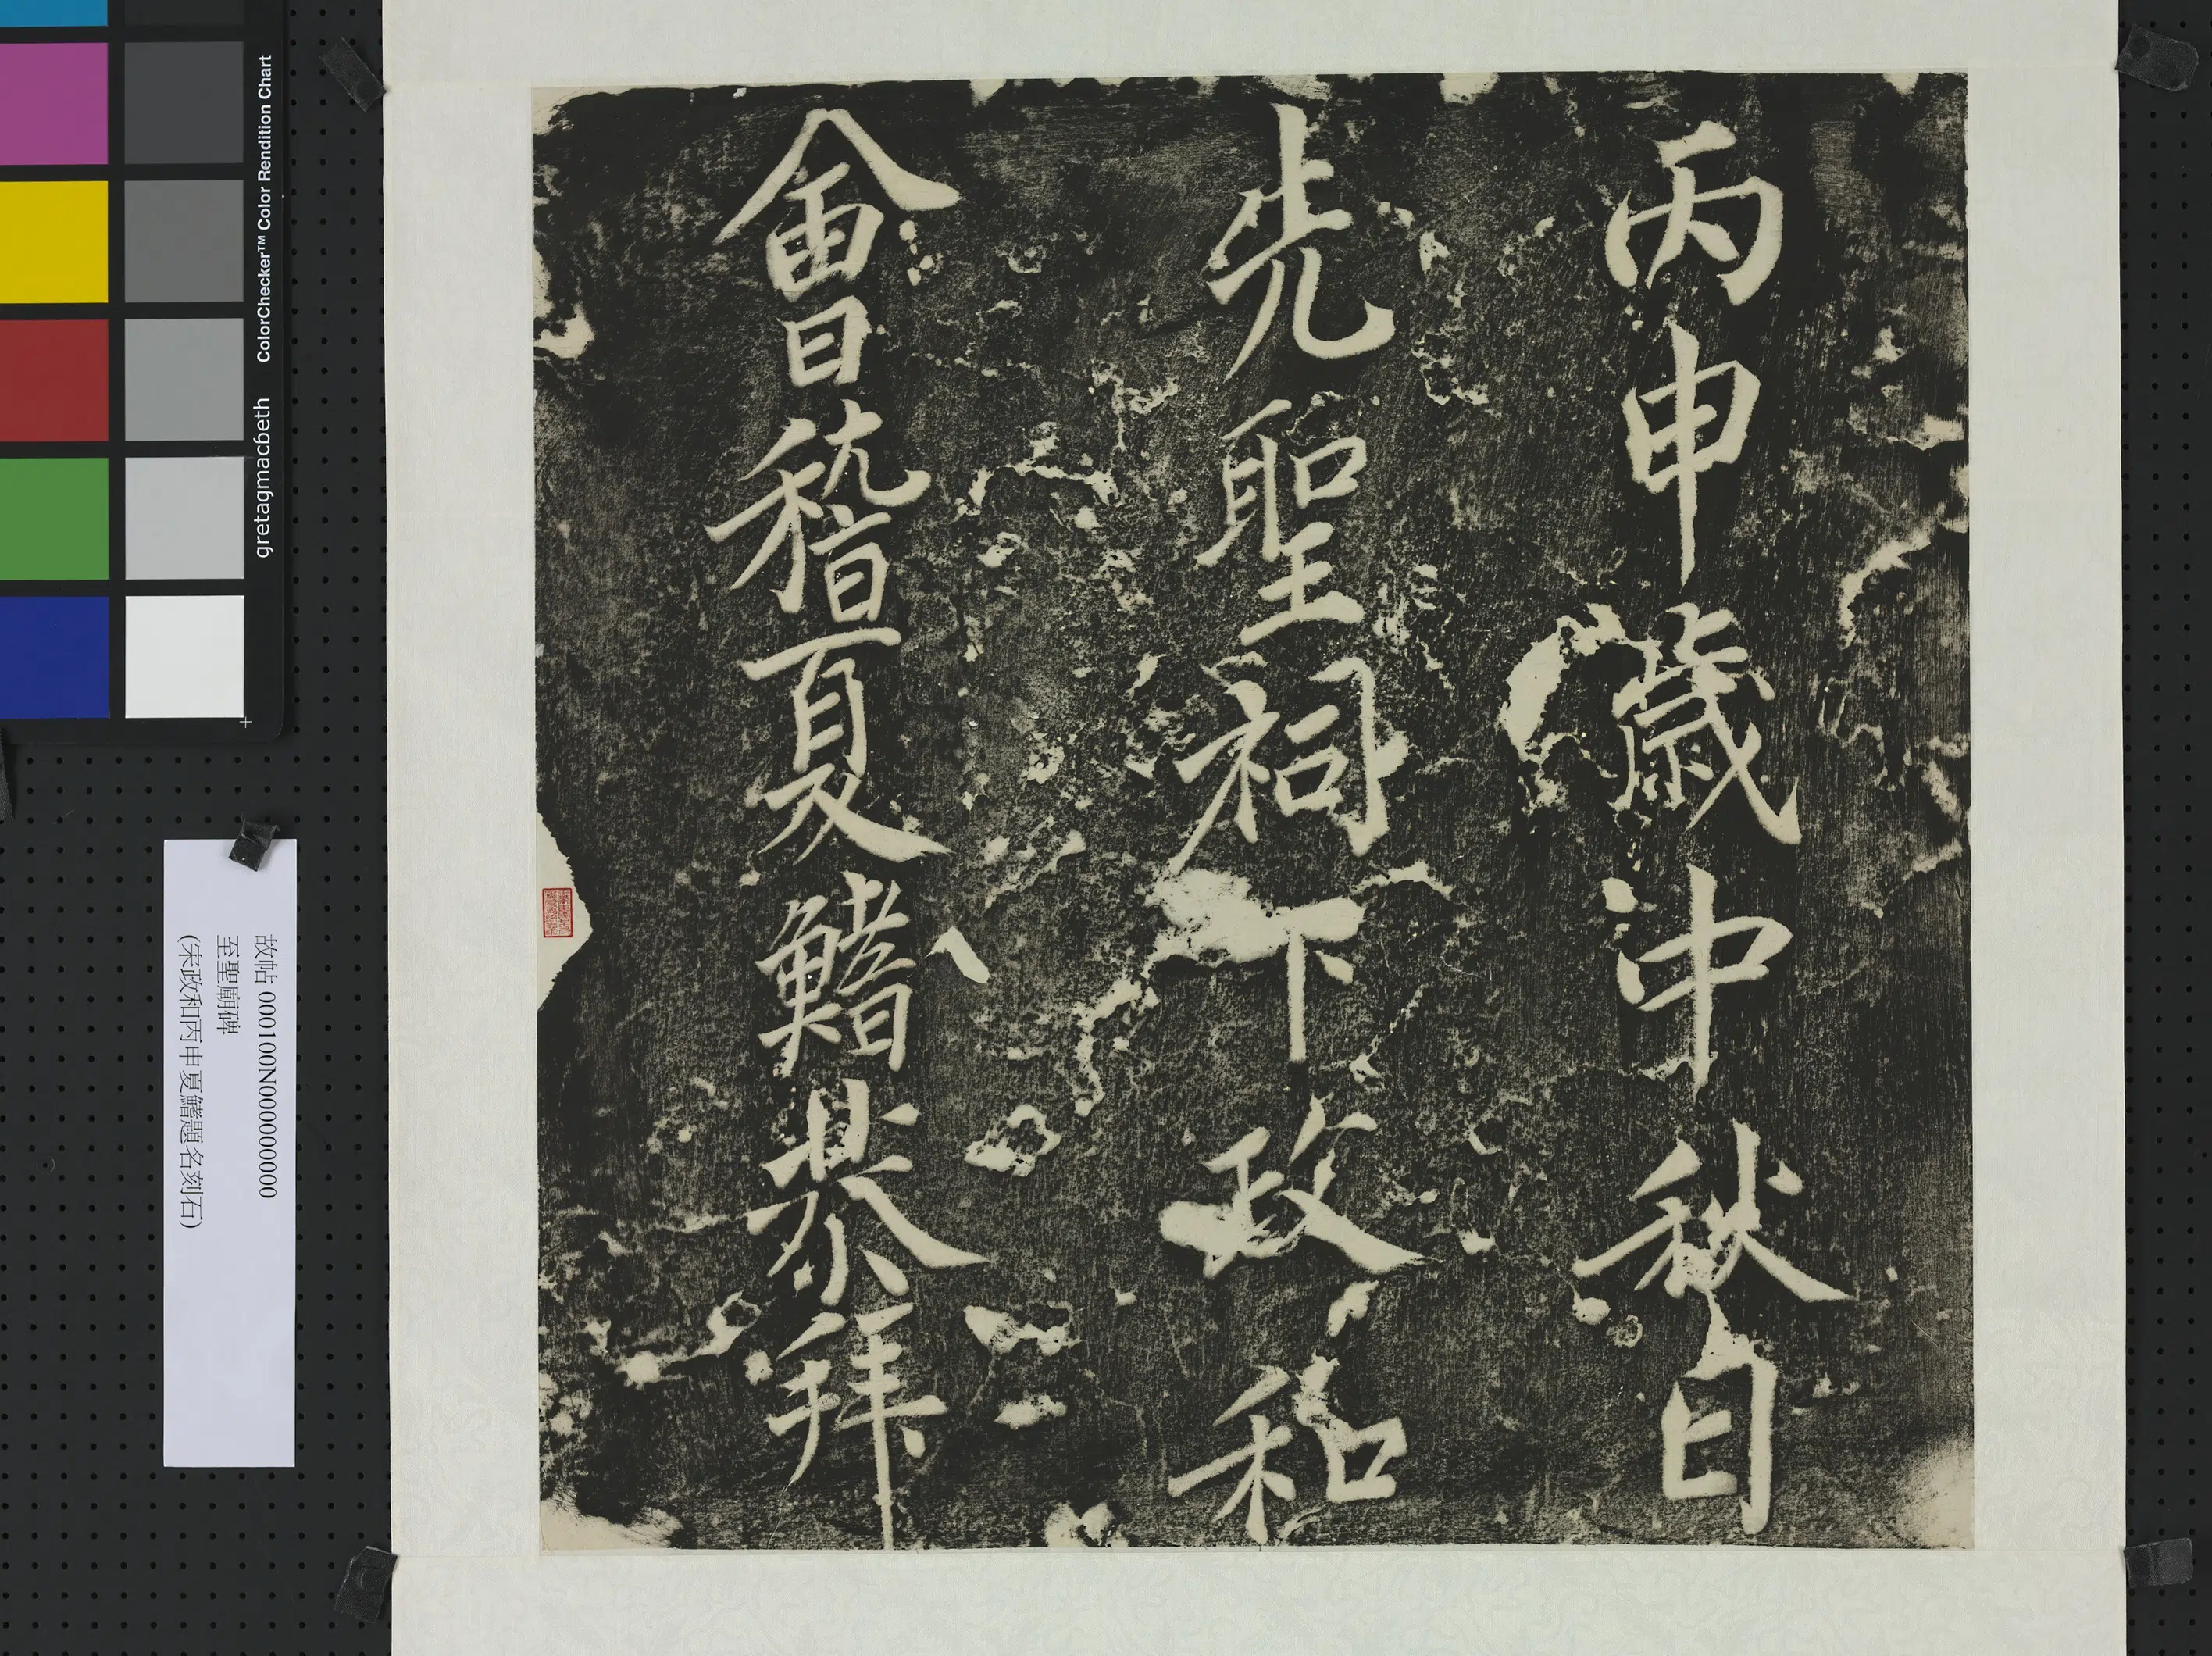 會稽夏鰭恭拜
先聖祠下政和
丙申歲中秋日
故帖 000100N000000000
至聖廟碑
(宋政和丙申夏鰭題名刻石)
ColorChecker™ Color Rendition Chart
gretagmacbeth